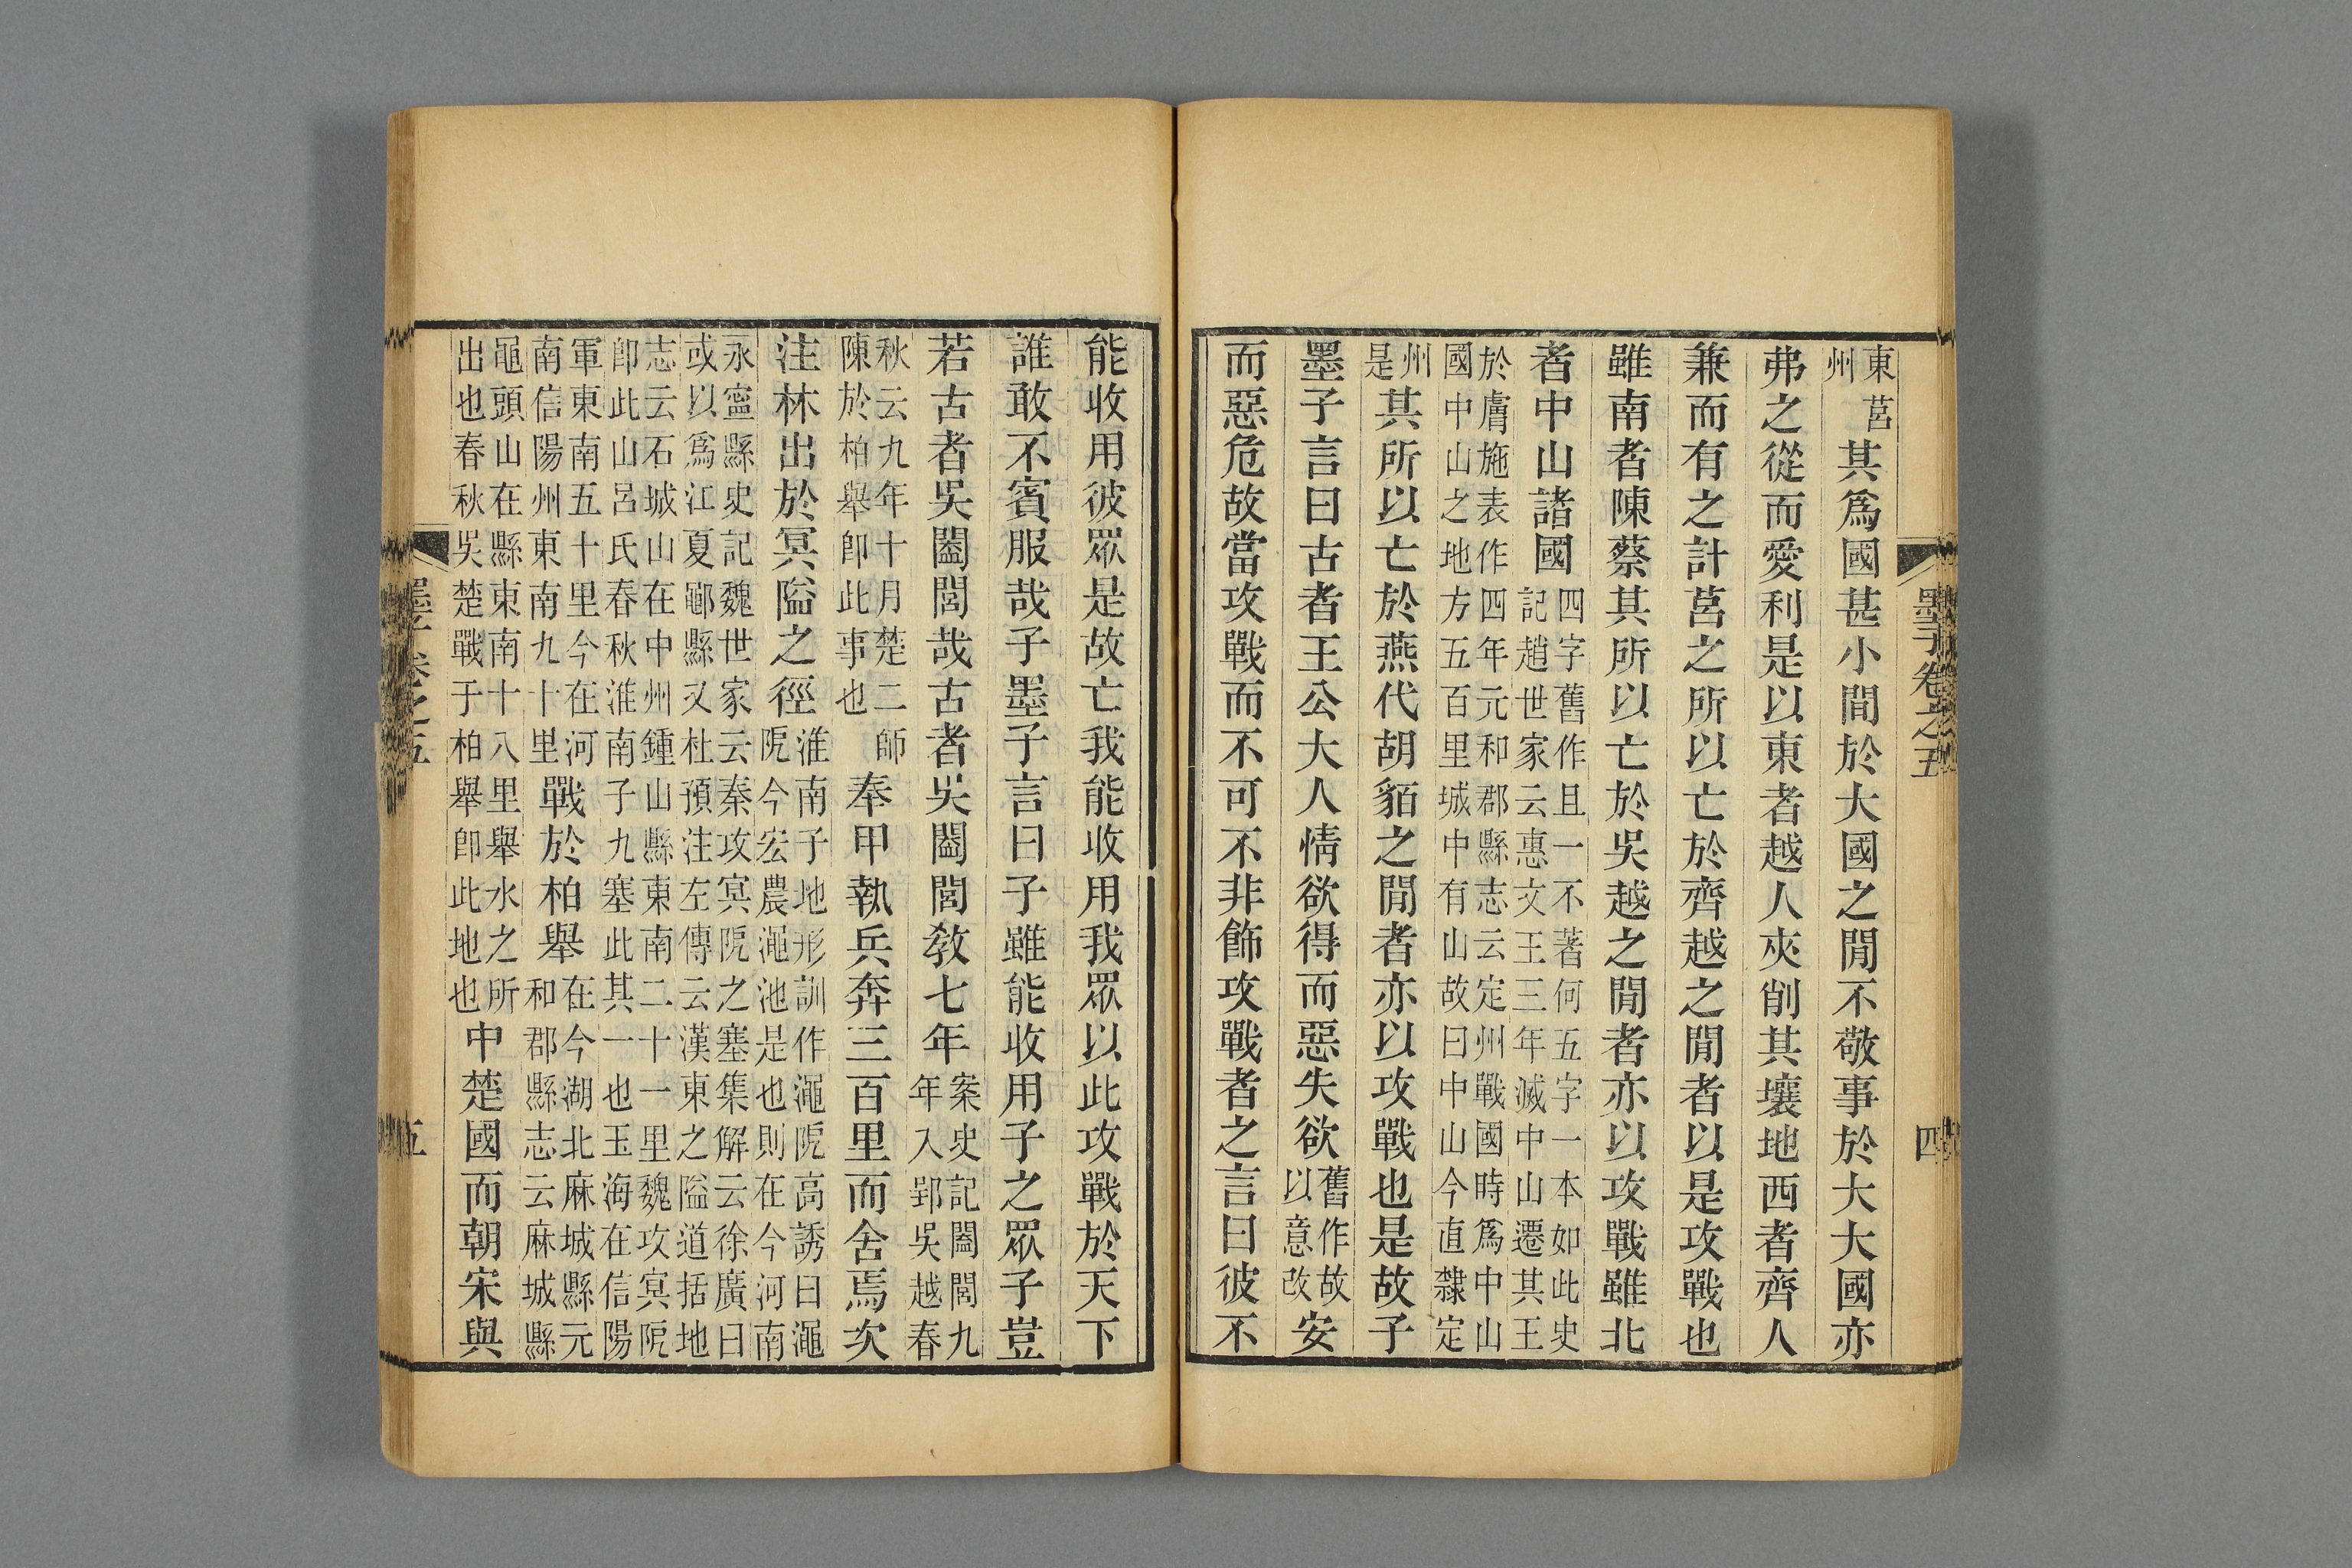 墨子卷之五
四
東莒州其爲國甚小間於大國之閒不敬事於大大國亦
弗之從而愛利是以東者越人夾削其壤地西者齊人
兼而有之計莒之所以亡於齊越之閒者以是攻戰也
雖南者陳蔡其所以亡於吳越之閒者亦以攻戰雖北
者中山諸國四字舊作且一不著何五字一本如此史記趙世家云惠文王三年滅中山遷其王
於膚施表作四年元和郡縣志云定州戰國時爲中山國中山之地方五百里城中有山故曰中山今直隸定
州是其所以亡於燕代胡貊之閒者亦以攻戰也是故子
墨子言曰古者王公大人情欲得而惡失欲舊作故以意改安
而惡危故當攻戰而不可不非飾攻戰者之言曰彼不
能收用彼眾是故亡我能收用我眾以此攻戰於天下
誰敢不賓服哉子墨子言曰子雖能收用子之眾子豈
若古者吳闔閭哉古者吳闔閭敎七年案史記闔閭九年入郢吳越春
秋云九年十月楚二師陳於柏舉卽此事也奉甲執兵奔三百里而舍焉次
注林出於冥隘之徑淮南子地形訓作澠阸高誘曰澠阸今宏農澠池是也則在今河南
永寧縣史記魏世家云秦攻冥阸之塞集解云徐廣曰或以爲江夏鄳縣又杜預注左傳云漢東之隘道括地
志云石城山在中州鍾山縣東南二十一里魏攻冥阸卽此山呂氏春秋淮南子九塞此其一也玉海在信陽
軍東南五十里今在河南信陽州東南九十里戰於柏舉在今湖北麻城縣元和郡縣志云麻城縣
黽頭山在縣東南十八里舉水之所出也春秋吳楚戰于柏舉卽此地也中楚國而朝宋與
墨子卷之五
五